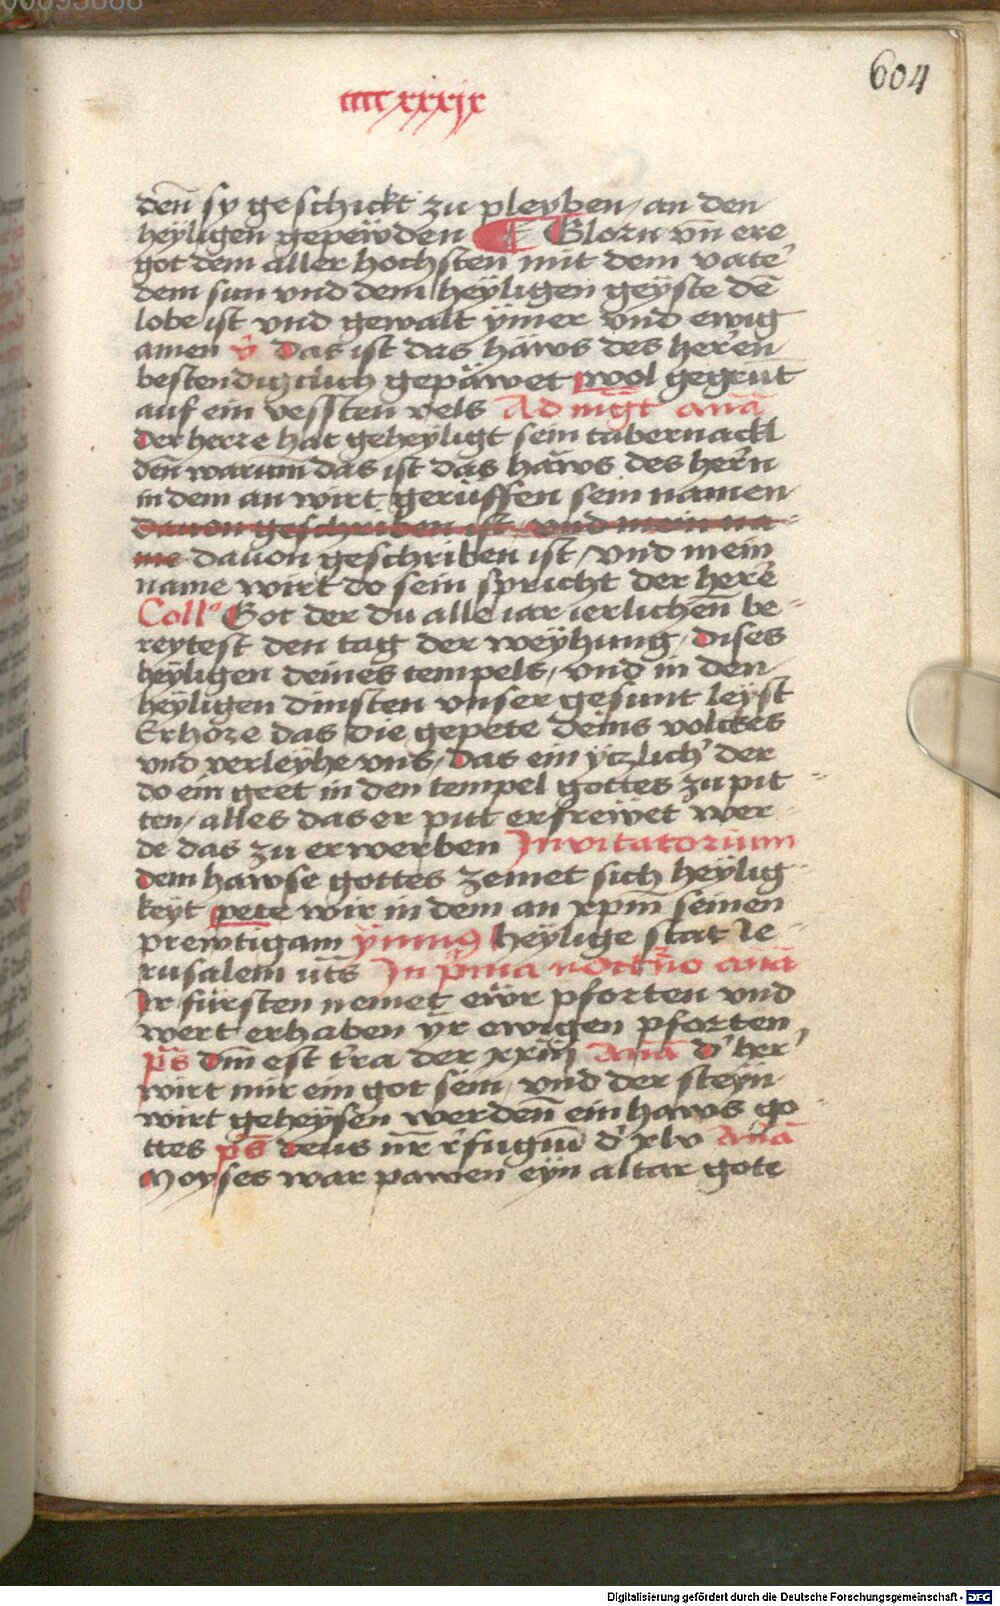 00095868
604
cccc xxxix
denn̄ sy geschickt zu pleyben / an den
heÿligen gepeẅden Glori vn̄ ere
got dem aller hochsten mit dem vate'
dem sun vnd dem heÿligen geÿste dē
lobe ist vnd gewalt ÿmer vnd ewig
amen v̄ Das ist das häws des her'en
bestendigclich gepäwet wol gegrūt
auf ein vessten vels Ad mg̅t an̄a
Der herre hat geheÿligt sein tabernackl
den̄ warum̄ das ist das häws des her'n
in dem an wirt gerüffen sein namen
dauon geschriben ist / vnd mein na-
me dauon geschriben ist / vnd mein
name wirt do sein spricht der herē
Coll'a Got der du alle iar ierlichen̄ be-
reytest den tag der weÿhung / dises
heÿligen deines tempels / vnd in den
heÿligen dinsten vnser gesunt leÿst
Erhore das die gepete deins volckes
vnd verleÿhe vns / das ein ÿczlich' der
do ein geet in den tempel gottes zu pit-
ten / alles das er pitt erfreẅet wer-
de das zu erwerben Invitatorium
Dem hawse gottes zemet sich heÿlig-
keÿt pete wir in dem an xp̄m seinen
prewtigam ÿmnus heÿlige stat Je-
rusalem ut̄s In p̄ma noct'no an̄a
Ir fürsten nemet eẅr pforten vnd
wert erhaben ÿr ewigen pforten
p̄s Dn̄i est t'ra der xxiij An̄a d' her'
wirt mir ein got sein / vnd der steÿn
wirt geheÿsen werden̄ ein haws go-
ttes p̄s deus nr̄ r'fugiū d' xlv An̄a
Moyses war pawen eÿn altar gote
Digitalisierung gefördert durch die Deutsche Forschungsgemeinschaft - DFG